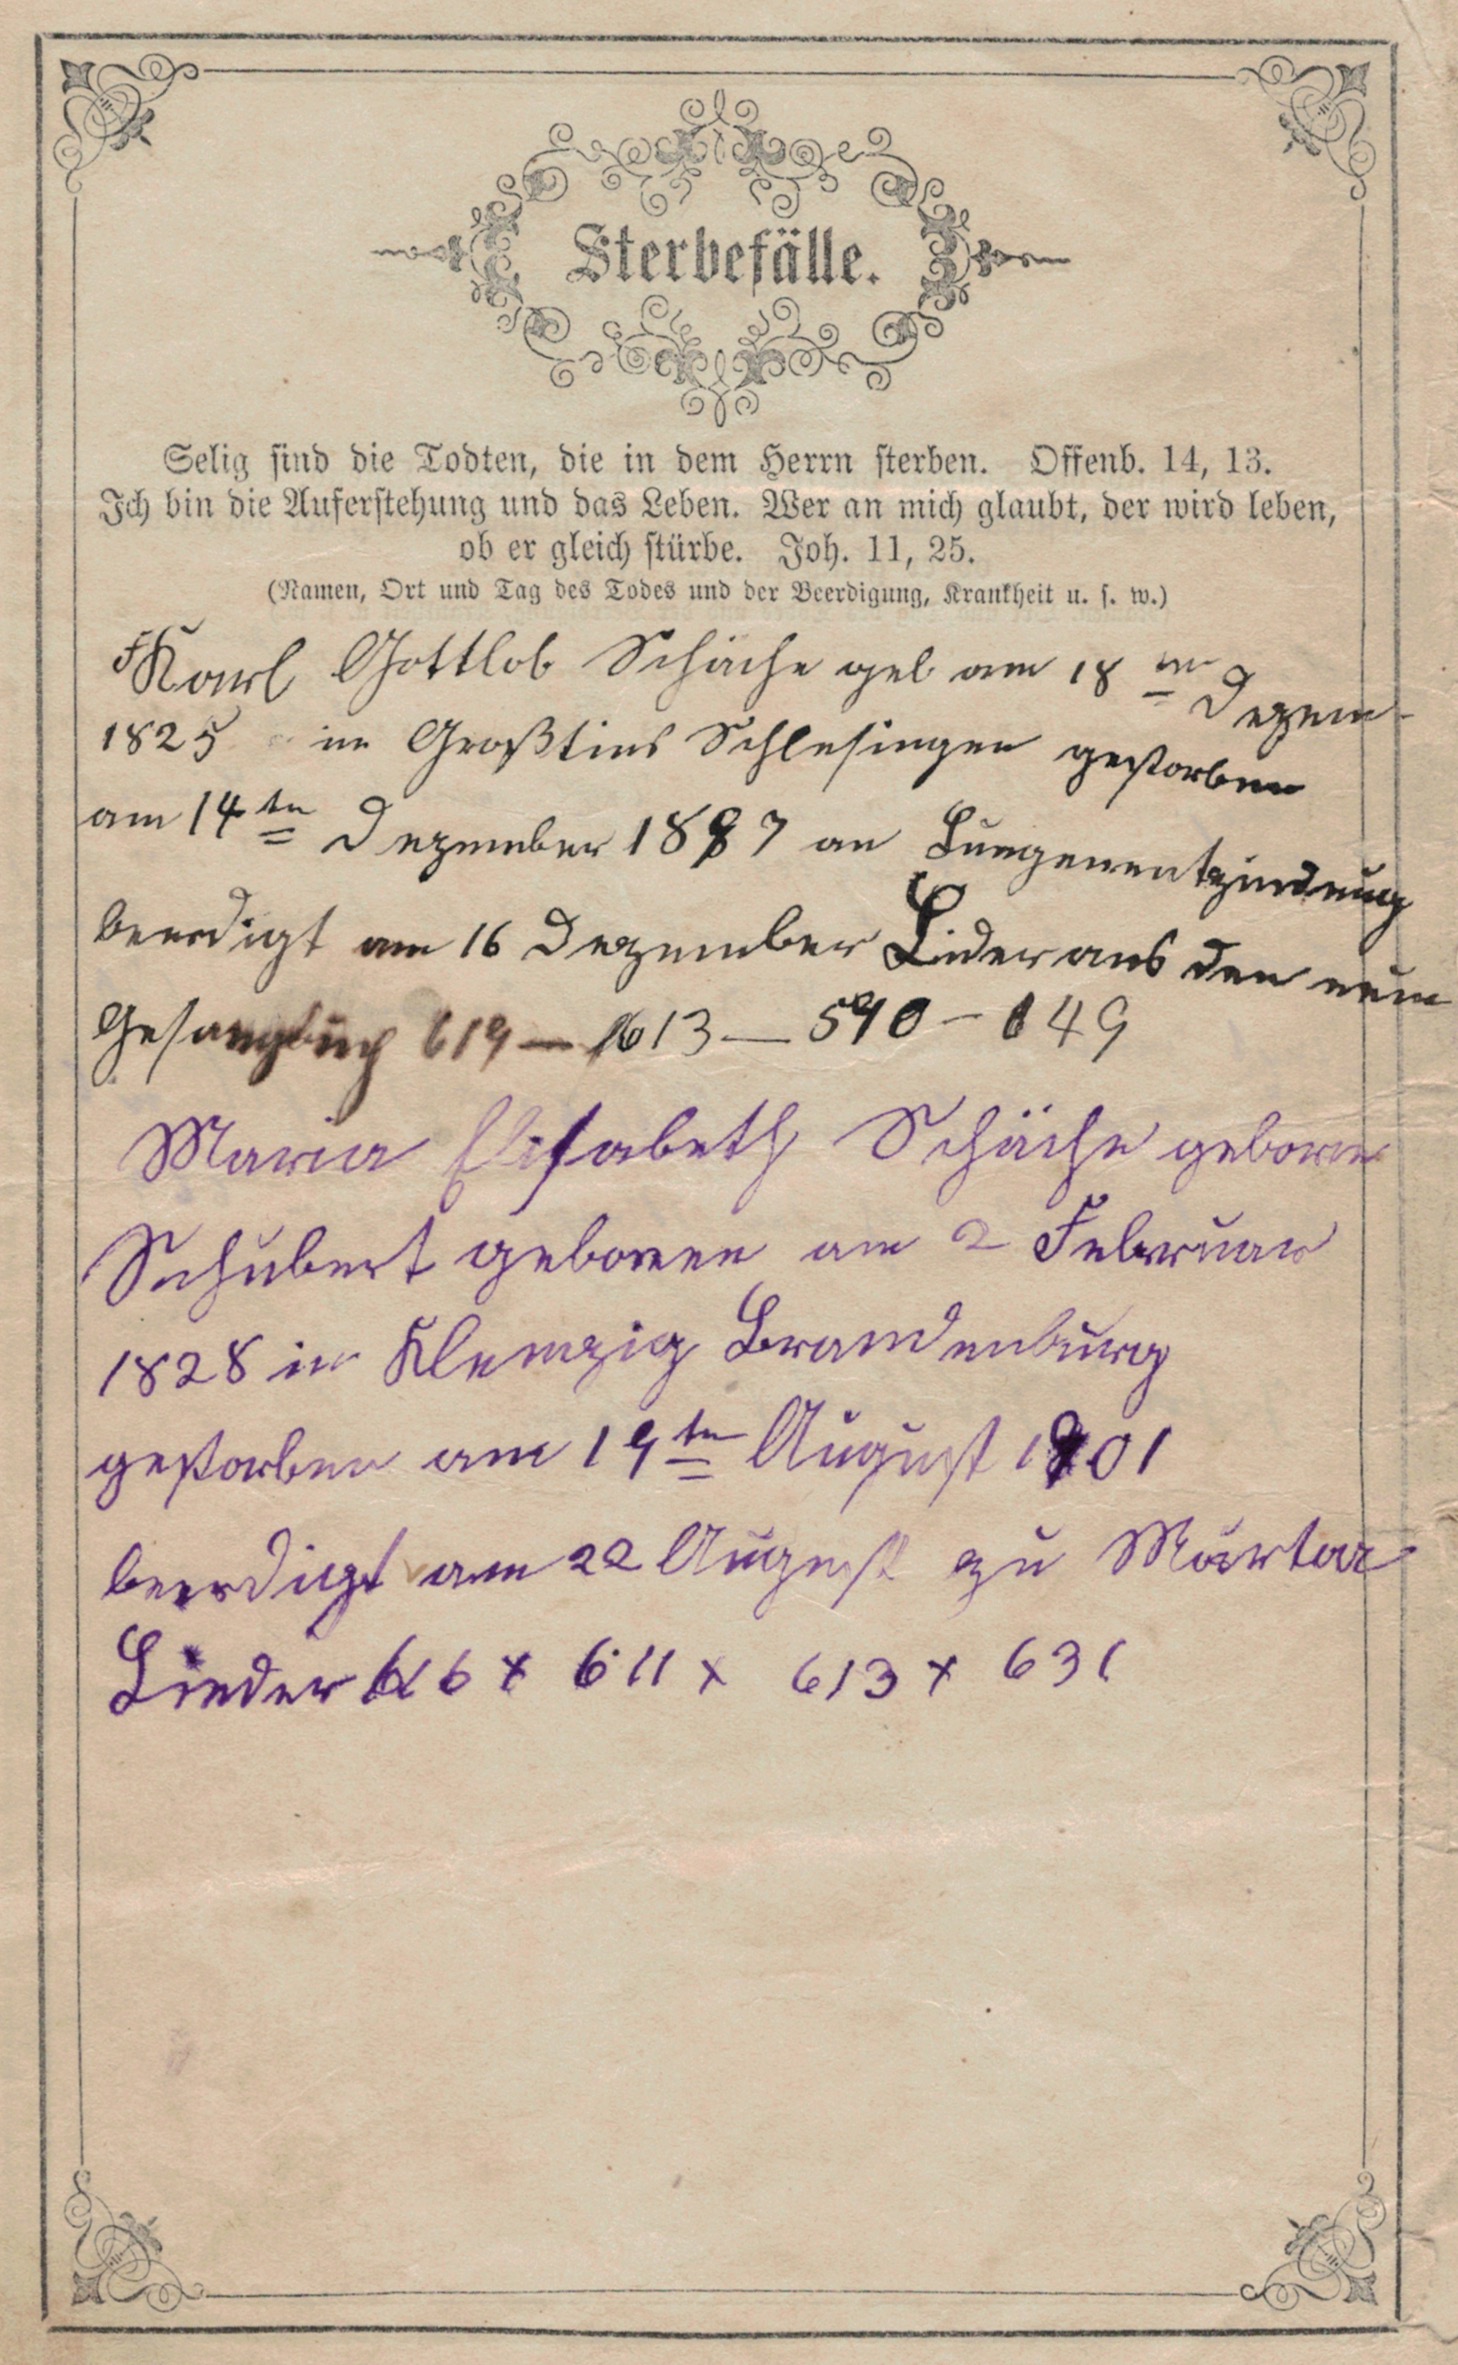 Sterbefälle.
Selig sind die Todten, die in dem Herrn sterben. Offenb. 14, 13.
Ich bin die Auferstehung und das Leben. Wer an mich glaubt, der wird leben,
ob er gleich stürbe. Joh. 11, 25.
(Namen, Ort und Tag des Todes und der Beerdigung, Krankheit u. s. w.)
Karl Gottlob Schäche geb am 18 ten Dezem-
1825 in Großtinz Schlesingen gestorben
am 14ten Dezember 1897 an Lungenentzindung
beerdigt am 16 Dezember Lider aus den neun
Gesangbuch 619 — 613 — 590 - 649
Maria Elisabeth Schäche geborne
Schubert geboren am 2 Februar
1828 in Klemzig Brandenburg
gestorben am 19ten August 1901
beerdigt am 22 August zu
Lieder 616 x 611 x 613 x 631